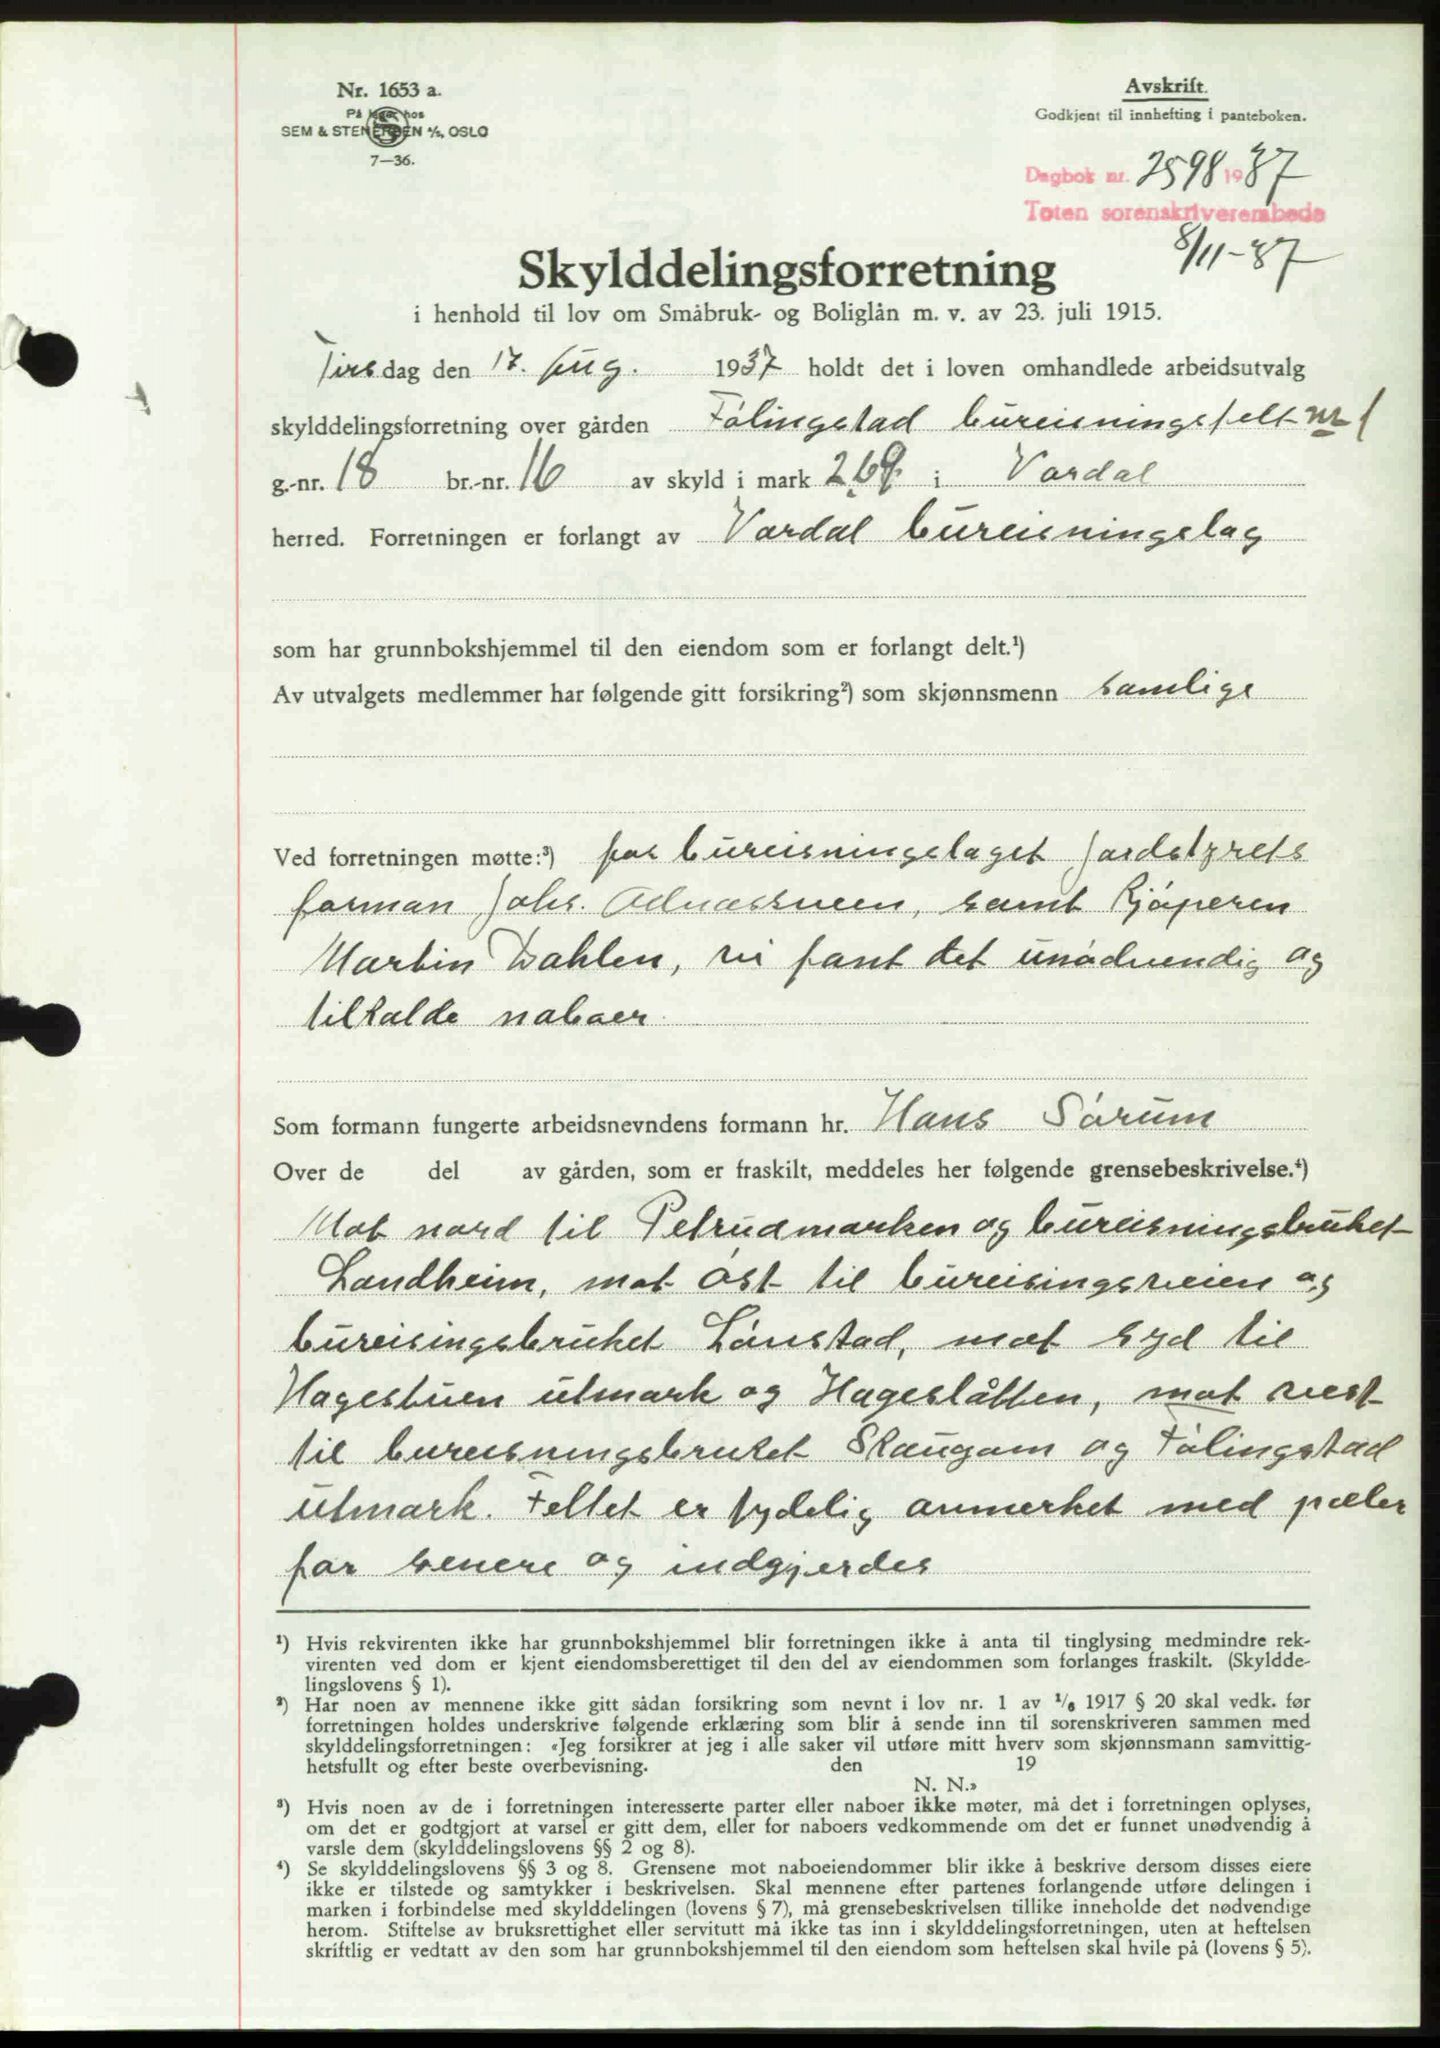 Nr. 1653 a.
På lager hos
SEM & STENERSEN A/S, OSLO
7—36.
Avskrift.
Godkjent til innhefting i panteboken.
Dagbok nr. 2598 1937
Toten sorenskriverembede
8/11-37
Skylddelingsforretning
i henhold til lov om Småbruk- og Boliglån m. v. av 23. juli 1915.
Tirsdag den 17. Aug. 1937 holdt det i loven omhandlede arbeidsutvalg
skylddelingsforretning over gården Fólingstad bureisningsfelt nr 1
g.-nr. 18 br.-nr. 16 av skyld i mark 2.69. i Vardal
herred. Forretningen er forlangt av Vardal bureisningslag
som har grunnbokshjemmel til den eiendom som er forlangt delt.¹)
Av utvalgets medlemmer har følgende gitt forsikring²) som skjønnsmenn samlige
Ved forretningen møtte:³) for bureisningslaget Jordstyrets
forman Johs. samt kjóperen
Martin Dahlen, vi fant det unódvendig og
tilkalde naboer
Som formann fungerte arbeidsnevndens formann hr. Hans Sórum
Over de del av gården, som er fraskilt, meddeles her følgende grensebeskrivelse.⁴)
Mot nord til Petrudmarken og bureisningsbruket
Landheim, mot óst til bureisingsveien og
bureisingsbruket Lónstad, mot syd til
Hagestuen utmark og Hageslåtten, mot vest
til bureisningsbruket Skaugam og Fólingstad
utmark. Feltet er tydelig anmerket med pæler
for senere og indgjerdes
¹) Hvis rekvirenten ikke har grunnbokshjemmel blir forretningen ikke å anta til tinglysing medmindre rek-
virenten ved dom er kjent eiendomsberettiget til den del av eiendommen som forlanges fraskilt. (Skyldde-
lingslovens § 1).
²) Har noen av mennene ikke gitt sådan forsikring som nevnt i lov nr. 1 av ¹/₆ 1917 § 20 skal vedk. før
forretningen holdes underskrive følgende erklæring som blir å sende inn til sorenskriveren sammen med
skylddelingsforretningen: «Jeg forsikrer at jeg i alle saker vil utføre mitt hverv som skjønnsmann samvittig-
hetsfullt og efter beste overbevisning. den 19
N. N.»
³) Hvis noen av de i forretningen interesserte parter eller naboer ikke møter, må det i forretningen oplyses,
om det er godtgjort at varsel er gitt dem, eller for naboers vedkommende om det er funnet unødvendig å
varsle dem (skylddelingslovens §§ 2 og 8).
⁴) Se skylddelingslovens §§ 3 og 8. Grensene mot naboeiendommer blir ikke å beskrive dersom disses eiere
ikke er tilstede og samtykker i beskrivelsen. Skal mennene efter partenes forlangende utføre delingen i
marken i forbindelse med skylddelingen (lovens § 7), må grensebeskrivelsen tillike inneholde det nødvendige
herom. Stiftelse av bruksrettighet eller servitutt må ikke tas inn i skylddelingsforretningen, uten at heftelsen
skriftlig er vedtatt av den som har grunnbokshjemmel til den eiendom som heftelsen skal hvile på (lovens § 5).